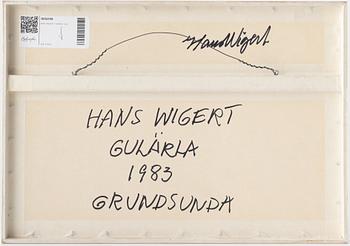 Hans Wigert
HANS WIGERT
GULÄRLA
1983
GRUNDSUNDA